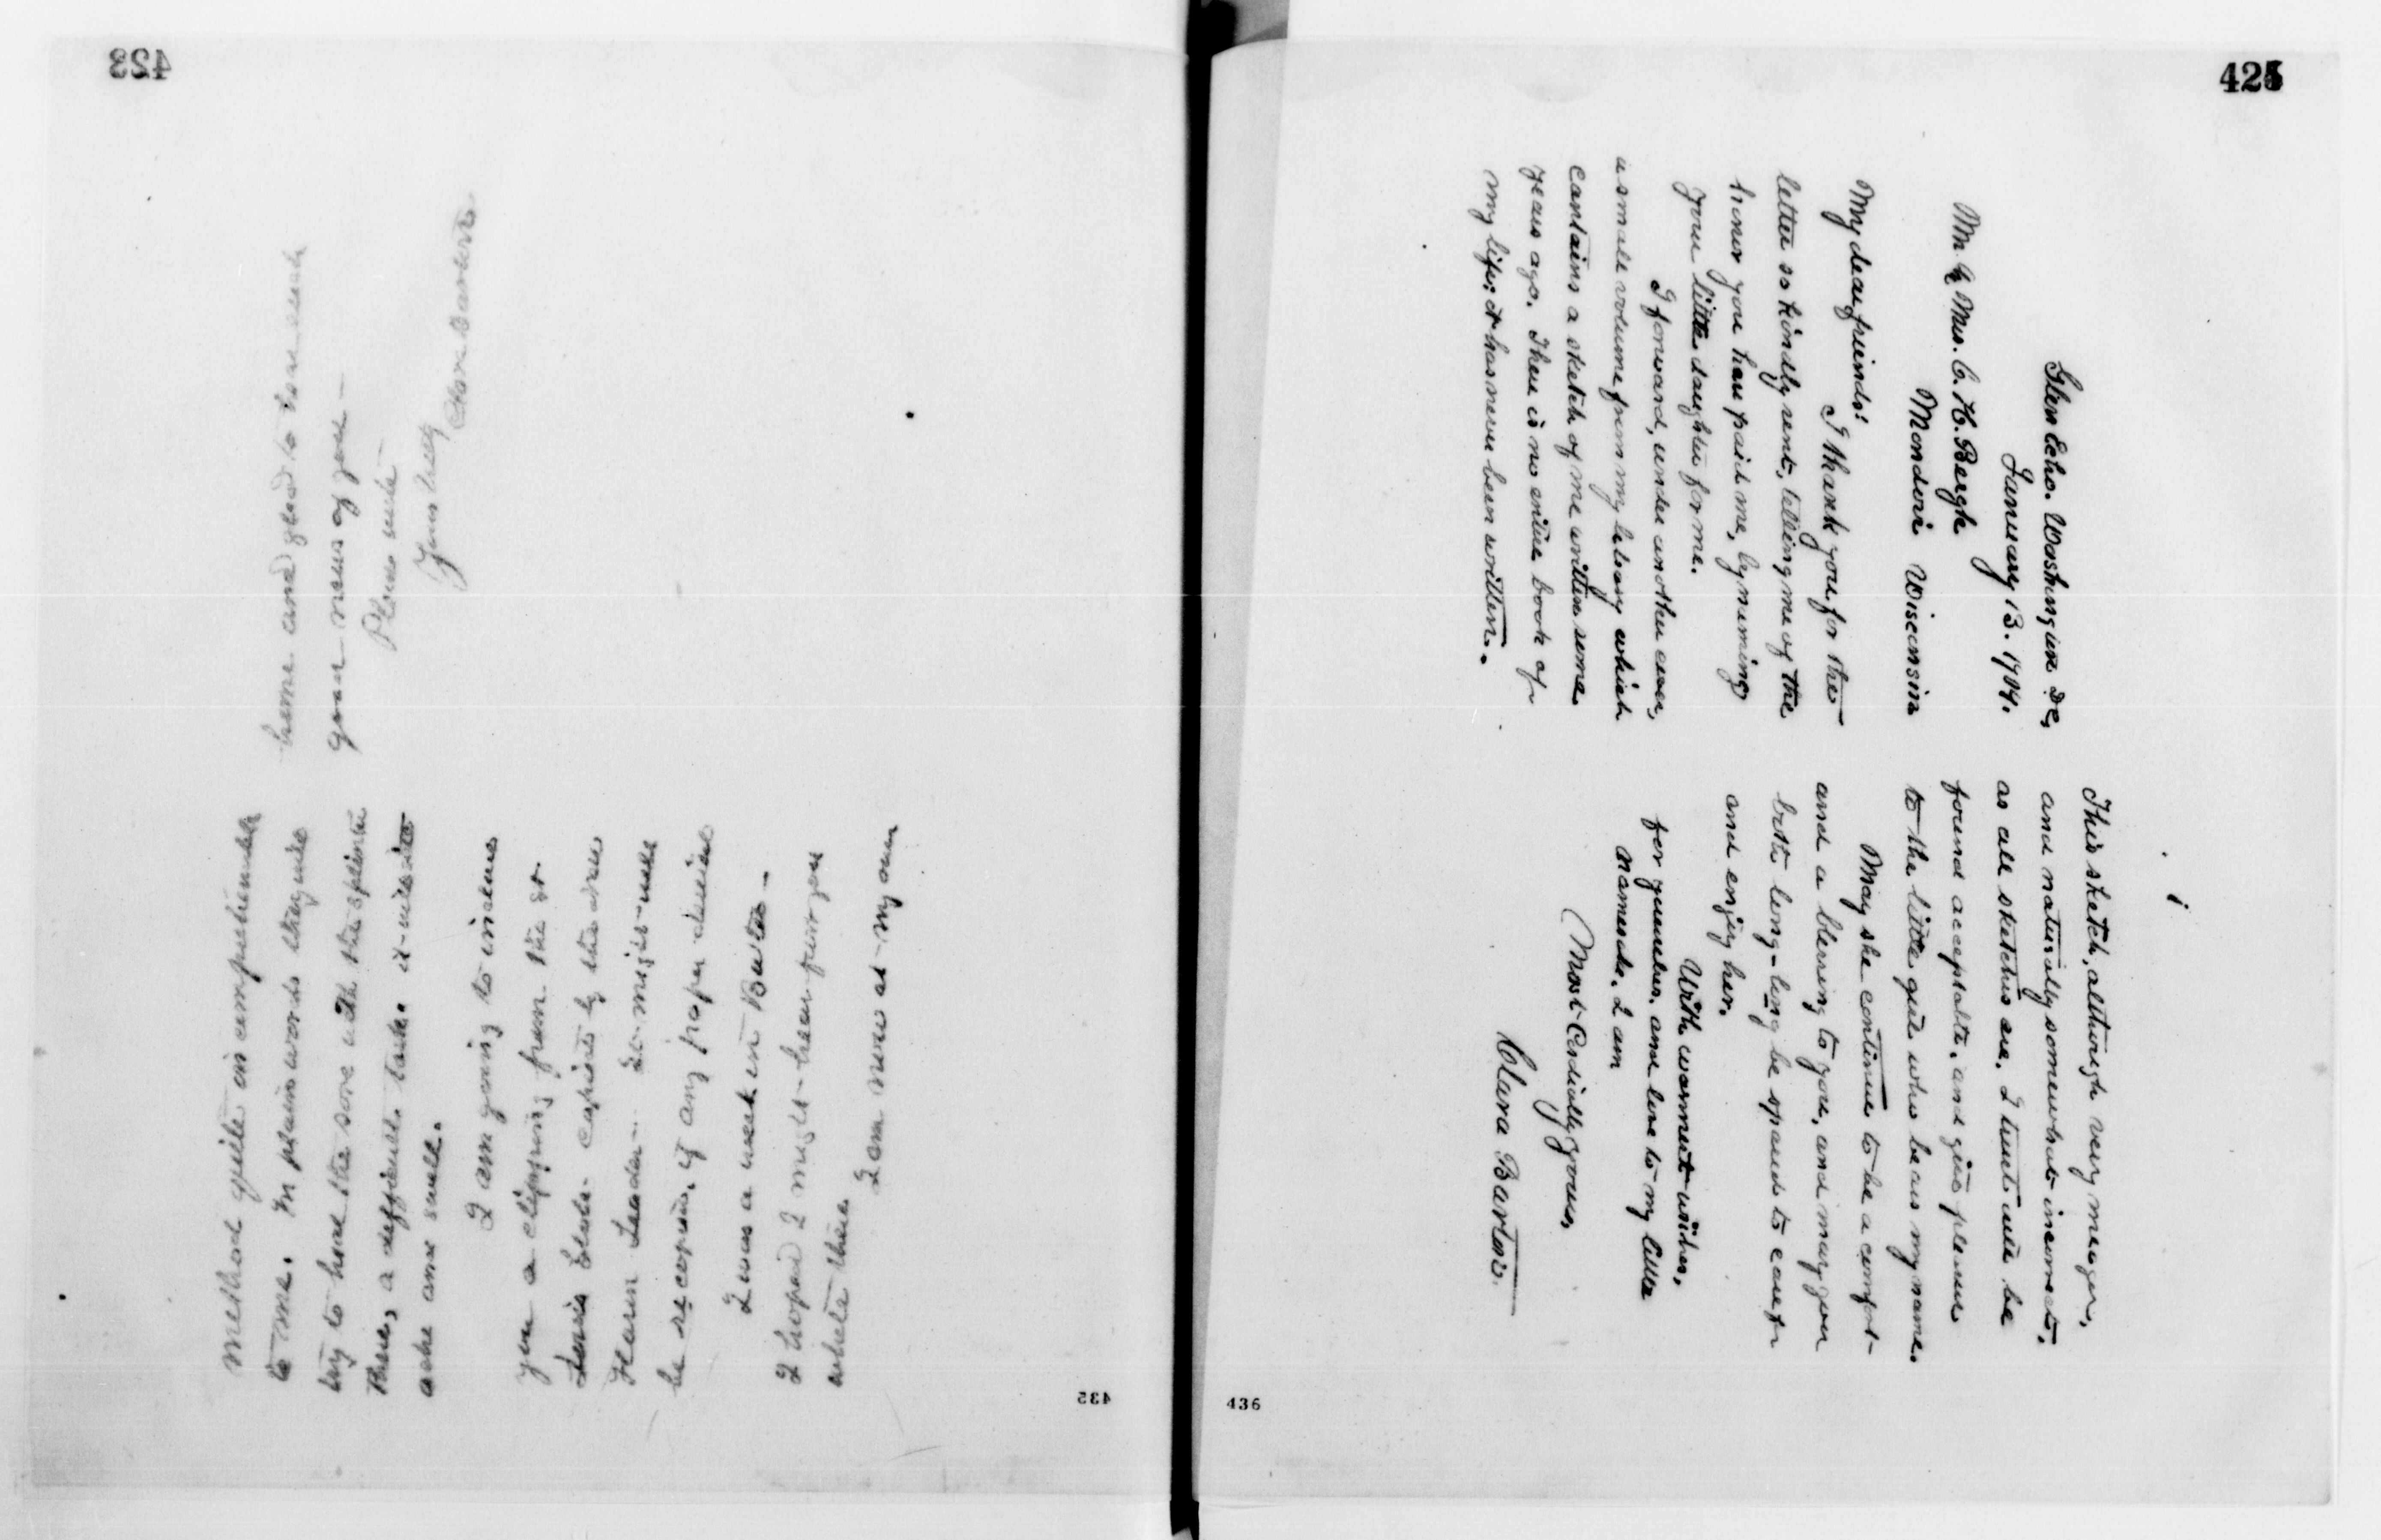 423
method quite incomprehensible
to me. In plain words they will
try to heal the sore with the splinter
there, a difficult task. it will
ache and swell.
I am going to inclose
you a clipping from the St.
Louis Globe- copied by the New
Haven Leader-. It might well
be recopied, if any paper desired
I was a week in
I hoped I might hear from you
while there.
I am now at my own
home and glad to have such
good news of you—
Please write
Yours truly
Clara Barton
435
425
Glen Echo. Washington D.C,
January 13. 1904.
Mr & Mrs. C. H. Bergh
Mondovi Wisconsin
My dear friends:
I thank you for the
letter so kindly sent, telling me of the
honor you have paid me, by naming
your little daughter for me.
I forward, under another cover,
a small volume from my library which
contains a sketch of me written some
years ago. There is no entire book of
my life; it has never been written.
This sketch, although very meager,
and naturally somewhat incorrect,
as all sketches are, I trust will be
found acceptable, and give pleasure
to the little girl who bears my name.
May she continue to be a comfort
and a blessing to you, and may you
both long-long be spared to care for
and enjoy her.
With warmest wishes,
for yourselves, and love to my little
namesake, I am
Most Cordially yours,
Clara Barton.
436